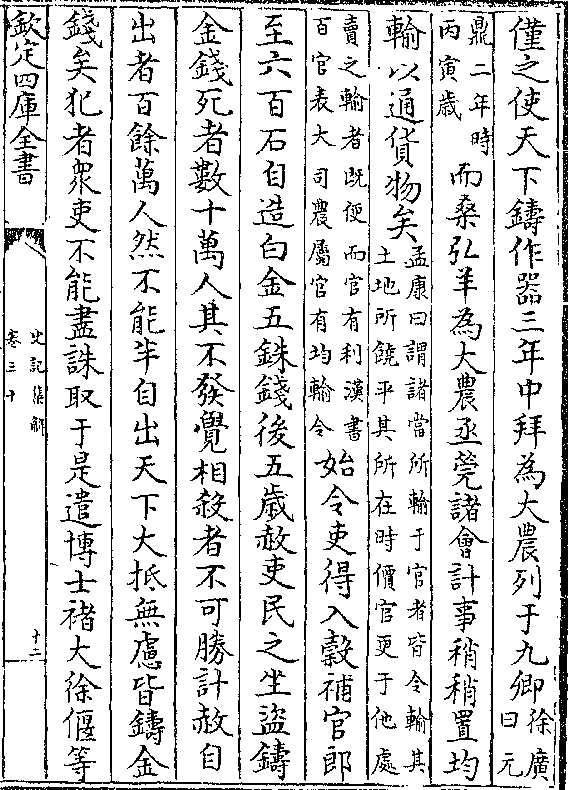 僅之使天下鑄作器三年中拜為大農列于九卿徐廣曰元
鼎二年時丙寅歲而桑弘羊為大農丞筦諸會計事稍稍置均
輸以通貨物矣孟康曰謂諸當所輸于官者皆令輸其土地所饒平其所在時價官更于他處
賣之輸者既便而官有利漢書百官表大司農屬官有均輸令始令吏得入穀補官郎
至六百石自造白金五銖錢後五歲赦吏民之坐盜鑄
金錢死者數十萬人其不發覺相殺者不可勝計赦自
出者百餘萬人然不能半自出天下大抵無慮皆鑄金
錢矣犯者眾吏不能盡誅取于是遣博士褚大徐偃等
欽定四庫全書
史記集解
卷三十
十二